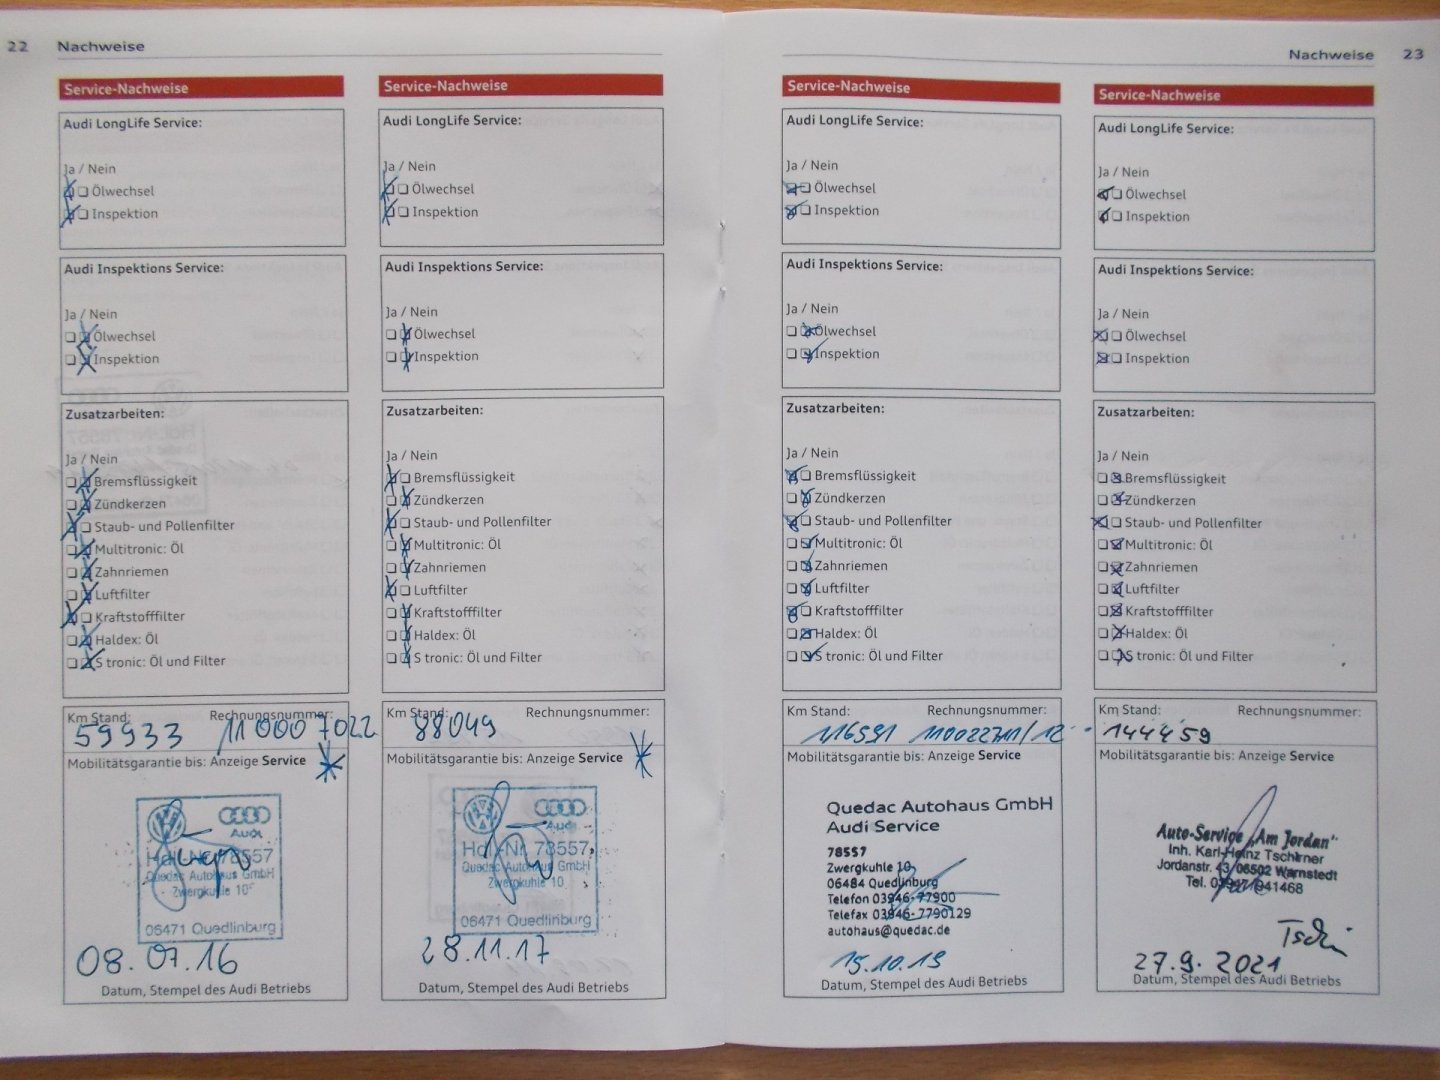 22 Nachweise
Service-Nachweise
Audi LongLife Service:
Ja / Nein
Ölwechsel
Inspektion
Audi Inspektions Service:
Ja / Nein
Ölwechsel
Inspektion
Zusatzarbeiten:
Ja / Nein
Bremsflüssigkeit
Zündkerzen
Staub- und Pollenfilter
Multitronic: Öl
Zahnriemen
Luftfilter
Kraftstofffilter
Haldex: Öl
S tronic: Öl und Filter
Km Stand: Rechnungsnummer:
59933 110007022
Mobilitätsgarantie bis: Anzeige Service
Audi
Hdl.-Nr. 78557
Quedac Autohaus GmbH
Zwergkuhle 10
06471 Quedlinburg
08.07.16
Datum, Stempel des Audi Betriebs
Service-Nachweise
Audi LongLife Service:
Ja / Nein
Ölwechsel
Inspektion
Audi Inspektions Service:
Ja / Nein
Ölwechsel
Inspektion
Zusatzarbeiten:
Ja / Nein
Bremsflüssigkeit
Zündkerzen
Staub- und Pollenfilter
Multitronic: Öl
Zahnriemen
Luftfilter
Kraftstofffilter
Haldex: Öl
S tronic: Öl und Filter
Km Stand: Rechnungsnummer:
88049
Mobilitätsgarantie bis: Anzeige Service
Audi
Hdl.-Nr. 78557
Quedac Autohaus GmbH
Zwergkuhle 10
06471 Quedlinburg
28.11.17
Datum, Stempel des Audi Betriebs
Nachweise 23
Service-Nachweise
Audi LongLife Service:
Ja / Nein
Ölwechsel
Inspektion
Audi Inspektions Service:
Ja / Nein
Ölwechsel
Inspektion
Zusatzarbeiten:
Ja / Nein
Bremsflüssigkeit
Zündkerzen
Staub- und Pollenfilter
Multitronic: Öl
Zahnriemen
Luftfilter
Kraftstofffilter
Haldex: Öl
S tronic: Öl und Filter
Km Stand: Rechnungsnummer:
116591
Mobilitätsgarantie bis: Anzeige Service
Quedac Autohaus GmbH
Audi Service
78557
Zwergkuhle 10
06484 Quedlinburg
Telefon 03946-77900
Telefax 03946-7790129
autohaus@quedac.de
15.10.19
Datum, Stempel des Audi Betriebs
Service-Nachweise
Audi LongLife Service:
Ja / Nein
Ölwechsel
Inspektion
Audi Inspektions Service:
Ja / Nein
Ölwechsel
Inspektion
Zusatzarbeiten:
Ja / Nein
Bremsflüssigkeit
Zündkerzen
Staub- und Pollenfilter
Multitronic: Öl
Zahnriemen
Luftfilter
Kraftstofffilter
Haldex: Öl
S tronic: Öl und Filter
Km Stand: Rechnungsnummer:
144459
Mobilitätsgarantie bis: Anzeige Service
Auto-Service „Am Jordan"
Inh. Karl-Heinz Tschirner
Jordanstr. 43, 06502 Warnstedt
Tel.
27.9.2021
Datum, Stempel des Audi Betriebs